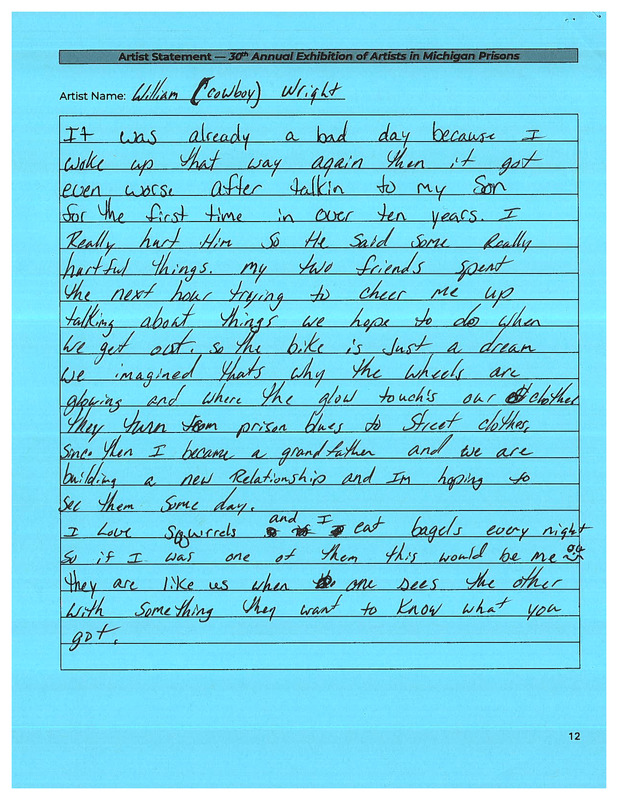 Artist Statement — 30th Annual Exhibition of Artists in Michigan Prisons
Artist Name: William (Cowboy) Wright
It was already a bad day because I
woke up that way again then it got
even worse after talkin to my Son
for the first time in over ten years. I
Really hurt Him So He Said Some Really
hurtful things. my two friends spent
the next hour trying to cheer me up
talking about things we hope to do when
we get out. so the bike is Just a dream
we imagined thats why the wheels are
glowing and where the glow touch's our clothes
they turn from prison blues to Street clothes.
Since then I became a grandfather and we are
building a new Relationship and Im hoping to
See them Some day.
I Love Sqwirrels and I eat bagels every night
So if I was one of them this would be me
they are like us when one sees the other
with Something they want to Know what you
got.
12